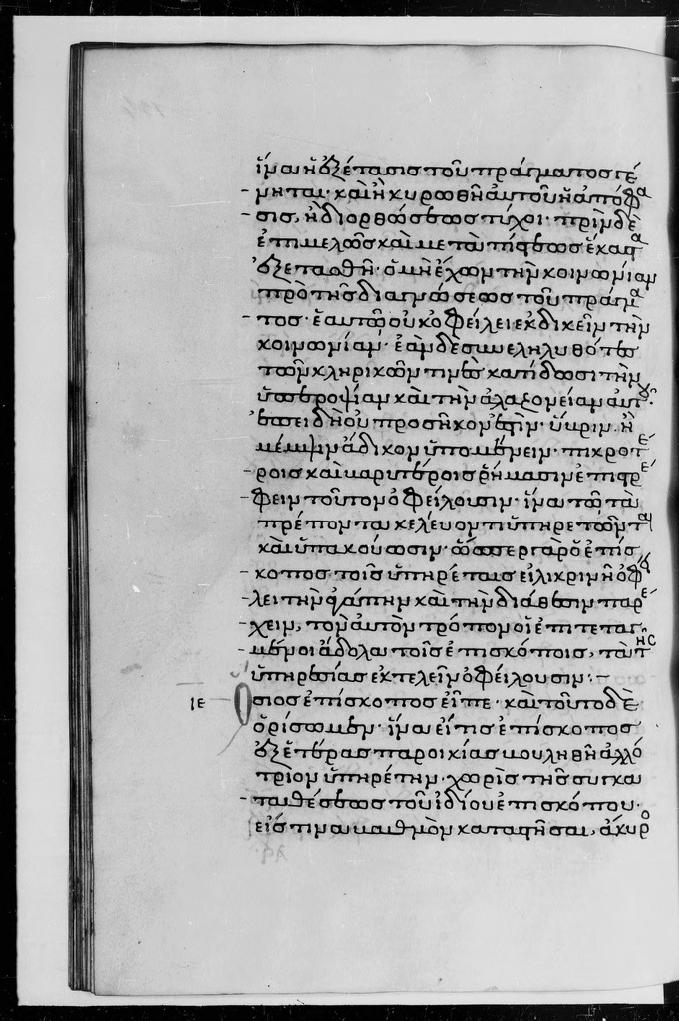 ἵνα ἡ ἐξέτασις τοῦ πράγματος γέ
νηται· καὶ ἢ κυρωθῆ αὐτοῦ ἡ ἀπόφα
σις, ἢ διορθώσεως τύχοι· πρὶν δὲ
ἐπιμελῶς καὶ μετὰ πίστεως ἕκαστα
ἐξετασθῆ· ὁ μὴ ἔχων τὴν κοινωνίαν
πρὸ τῆς διαγνώσεως τοῦ πράγμα
τος· ἑαυτῶ οὐκ ὀφείλει ἐκδικεῖν τὴν
κοινωνίαν· ἐὰν δὲ συνεληλυθότες
τῶν κληρικῶν τινὲς κατίδωσι τὴν
ὑπεροψίαν καὶ τὴν ἀλαζονείαν αὐτοῦ·
ἐπειδὴ οὐ προσῆκον ἐστὶν· ὕβριν· ἢ
μέμψιν ἄδικον ὑπομένειν· πικροτέ
ροις καὶ βαρυτέροις ῥήμασιν ἐπιστρέ
φειν τοῦτον ὀφείλουσιν· ἵνα τῶ τὰ
πρέποντα κελεύοντι ὑπηρετῶνται
καὶ ὑπακούωσιν· ὥσπερ γὰρ ὁ ἐπίσ
κοπος τοῖς ὑπηρέταις εἰλικρινῆ ὀφεί
λει τὴν ἀγάπην καὶ τὴν διάθεσιν παρέ
χειν, τὸν αὐτὸν τρόπον οἱ ἐπιτεταγ
μένοι ἄδολα τοῖς ἐπισκόποις, τὰ τῆς
ὑπηρεσίας ἐκτελεῖν ὀφείλουσιν:–
ιε Ὅσιος ἐπίσκοπος εἶπε· καὶ τοῦτο δὲ
ὁρίσωμεν· ἵνα εἴ τις ἐπίσκοπος
ἐξ ἑτέρας παροικίας βουληθῆ ἀλλό
τριον ὑπηρέτην· χωρὶς τῆς συγκα
ταθέσεως τοῦ ἰδίου ἐπισκόπου·
εἴς τινα βαθμὸν καταστῆσαι, ἄκυρο